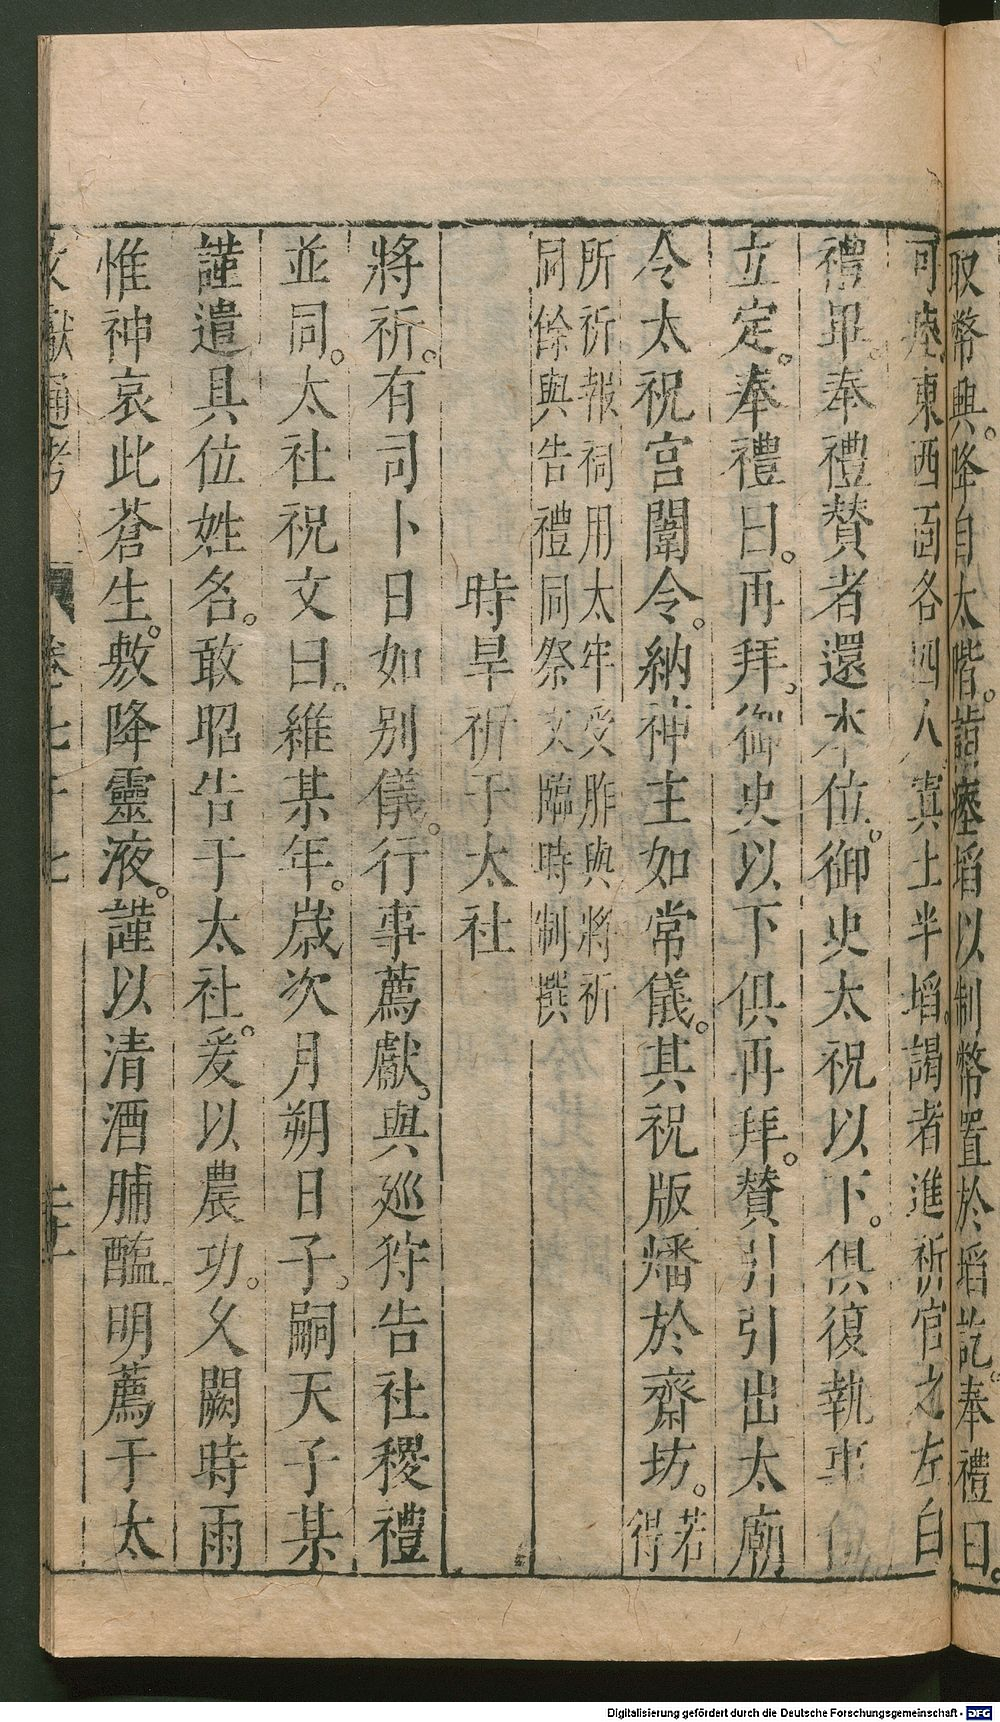 取幣興。降自太階。詣瘞埳以制幣置於埳訖。奉禮曰。
可瘞東西面各四人寘土半埳。謁者進祈官之左白
禮畢。奉禮贊者還本位。御史太祝以下。俱復執事位
立定。奉禮曰。再拜。御史以下俱再拜。贊引引出太廟
令太祝宮闈令。納神主如常儀。其祝版燔於齋坊。若得
所祈報祠用太牢受胙與將祈
同餘與告禮同祭文臨時制撰
時旱祈于太社
將祈。有司卜日如別儀。行事薦獻。與廵狩告社稷禮
並同。太社祝文曰。維某年。歲次月朔日子。嗣天子某
謹遣具位姓名。敢昭告于太社。爰以農功。久闕時雨
惟神哀此蒼生。敷降靈液。謹以清酒脯醢。明薦于太
文獻通考 卷七十七
Digitalisierung gefördert durch die Deutsche Forschungsgemeinschaft - DFG